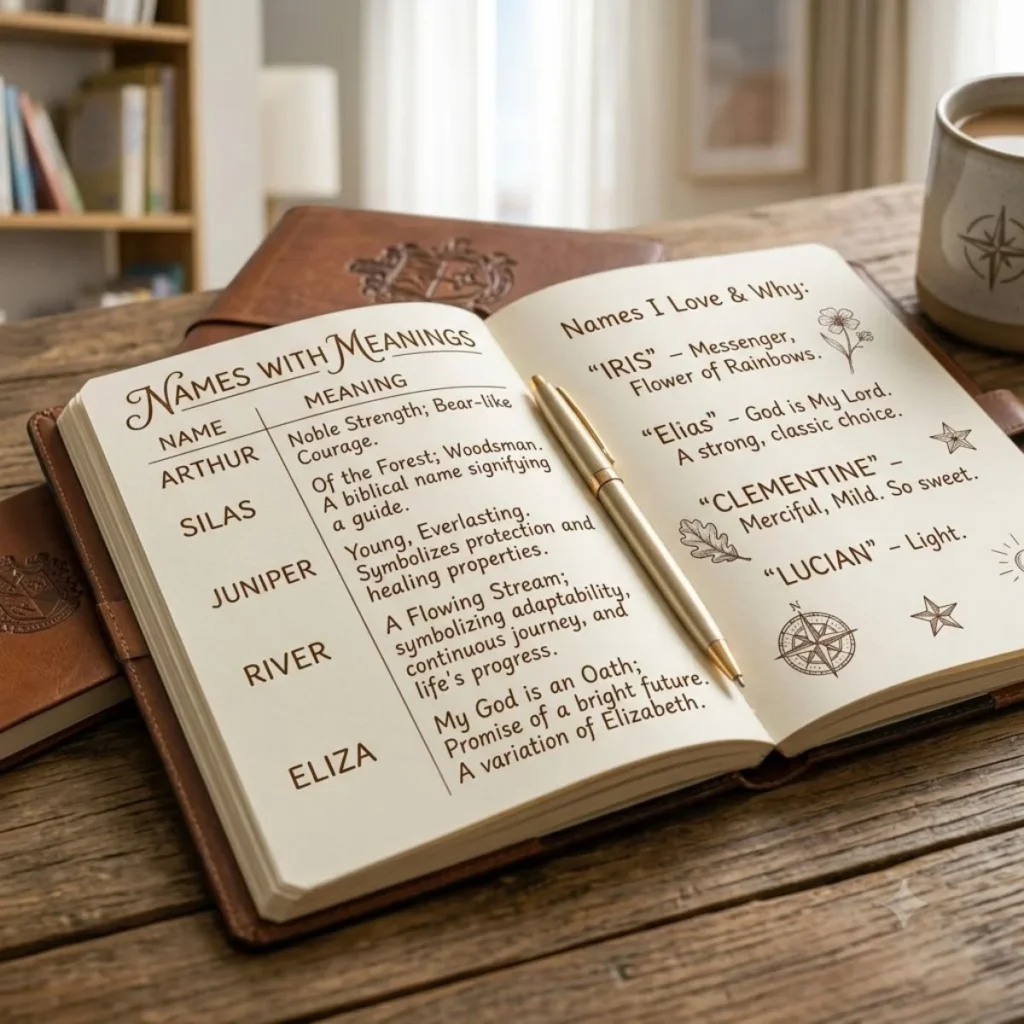 NAMES WITH MEANINGS
NAME MEANING
ARTHUR Noble Strength; Bear-like
Courage.
SILAS Of the Forest; Woodsman.
A biblical name signifying
a guide.
JUNIPER Young, Everlasting.
Symbolizes protection and
healing properties.
RIVER A Flowing Stream;
symbolizing adaptability,
continuous journey, and
life's progress.
ELIZA My God is an Oath;
Promise of a bright future.
A variation of Elizabeth.
Names I Love & Why:
"IRIS" – Messenger,
Flower of Rainbows.
"Elias" – God is My Lord.
A strong, classic choice.
"CLEMENTINE" –
Merciful, Mild. So sweet.
"LUCIAN" – Light.
N